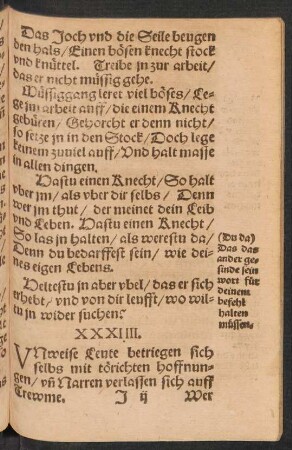 Das Joch vnd die Seile beugen
den hals / Einen bösen knecht stock
vnd knüttel. Treibe jn zur arbeit /
das er nicht müssig gehe.
Müssiggang leret viel böses / Le-
ge jm arbeit auff / die einem Knecht
gebüren / Gehorcht er denn nicht /
so setze jn in den Stock / Doch lege
keinem zuuiel auff / Vnd halt masse
in allen dingen.
Hastu einen Knecht / So halt
vber jm / als vber dir selbs / Denn
wer jm thut / der meinet dein Leib
vnd Leben. Hastu einen Knecht /
So las jn halten / als werestu da /
Denn du bedarffest sein / wie dei-
nes eigen Lebens.
Heltestu jn aber vbel / das er sich
erhebt / vnd von dir leufft / wo wil-
tu jn wider suchen?
(Du da)
Das das
ander ge-
sinde sein
wort für
deinem
befehl
halten
müssen.
XXXIIII.
VNweise Leute betriegen sich
selbs mit törichten hoffnun-
gen / vñ Narren verlassen sich auff
Trewme. J ij Wer